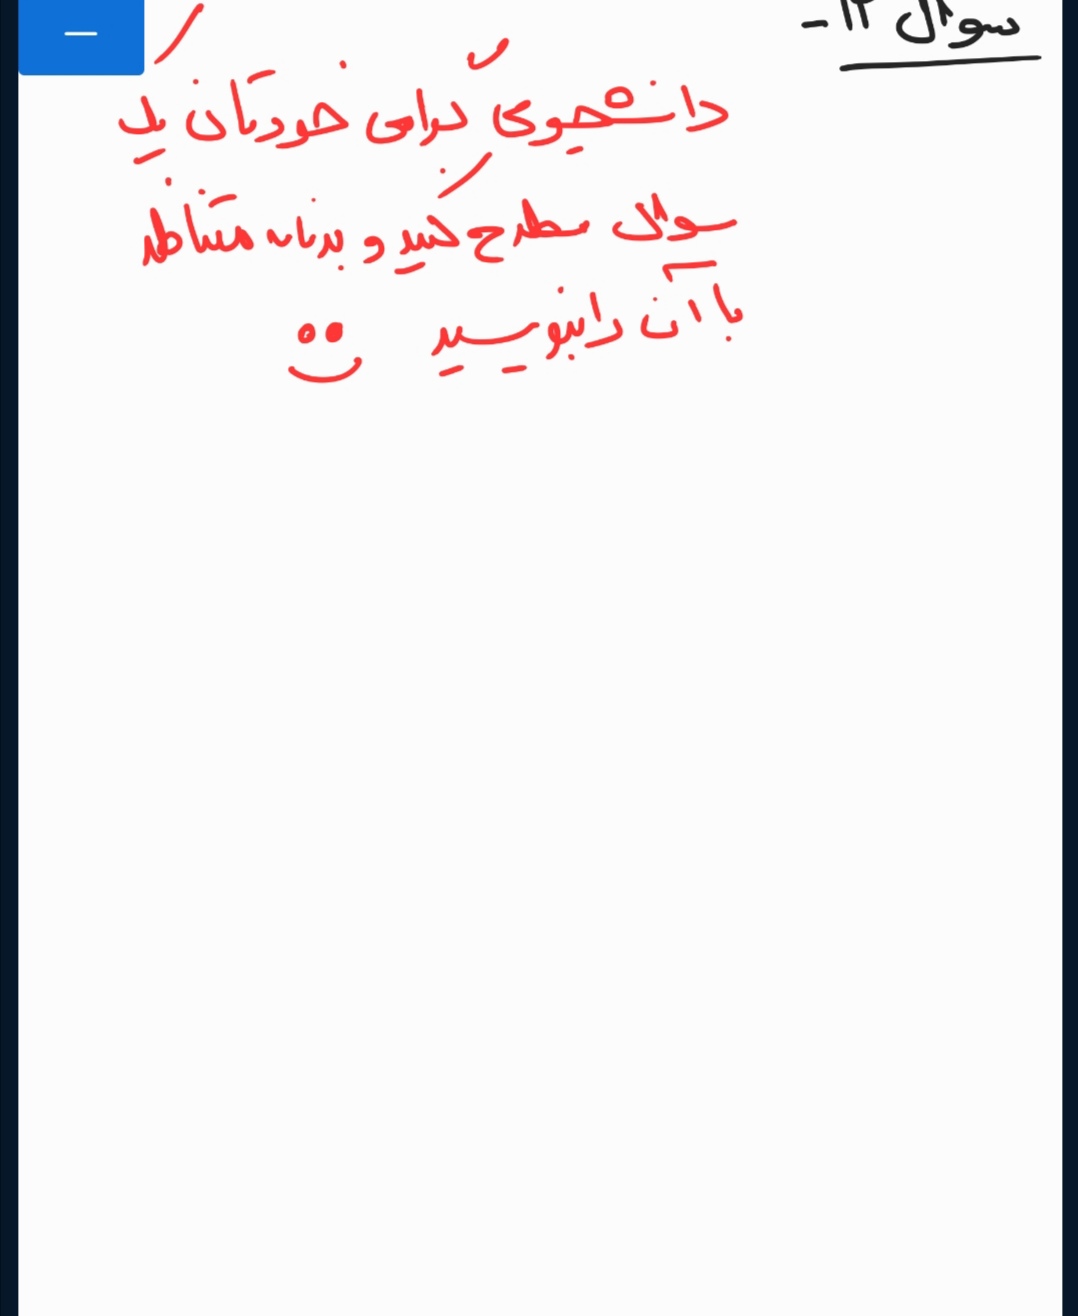 سوال ۱۲-
دانشجوی گرامی خودتان یک
سوال مطرح کنید و برنامه متناظر
با آن را بنویسید